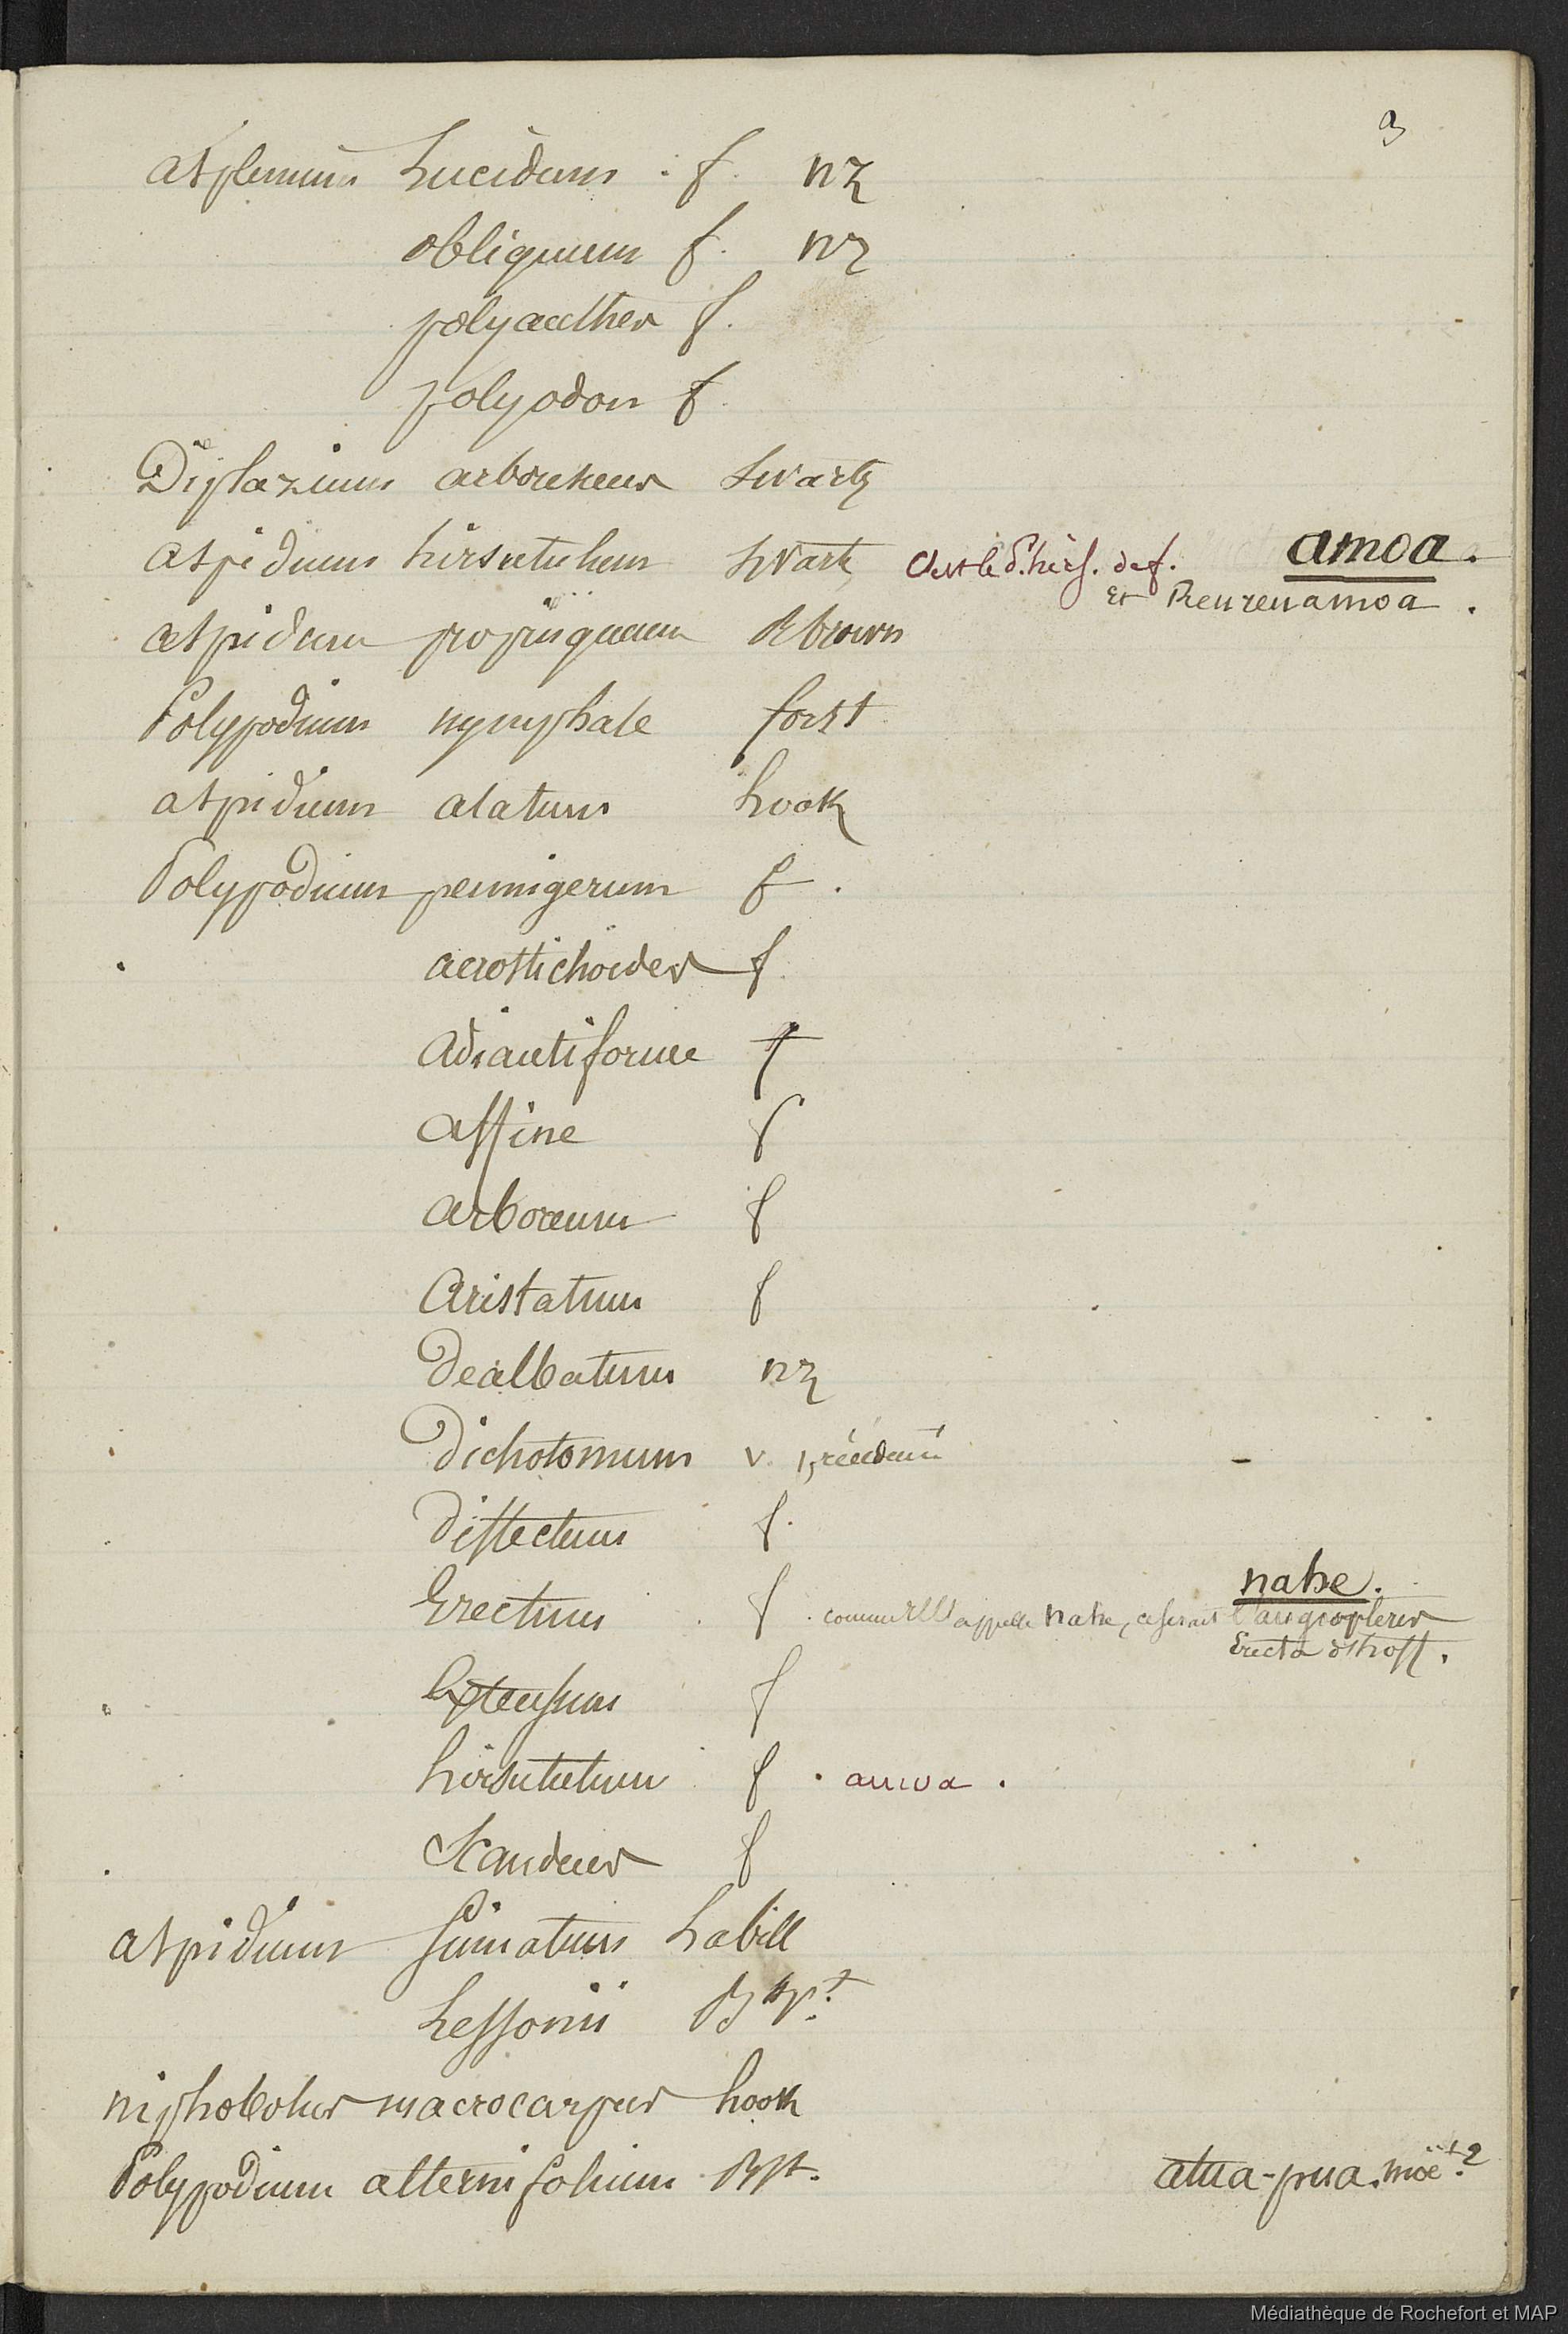 3
asplenium Lucidum . f. nz
obliquum f. nz
polyanther f.
polyodon f.
Diplazium arborescens Swartz
aspidium hirsutulum Swartz C'est le P. hirs. de f. amoa.
et Reureu amoa.
aspidium propinquum R brown
Polypodium nymphale forst
aspidium alatum hook
Polypodium pennigerum f.
acrostichoïdes f.
Adiantiforme f
affine f
arboreum f
aristatum f
Dealbatum nz
Dichotomum v. précédent
dissectum f.
Erectum f. comme appelle nahe, ce serait l'angiopteris nahe.
Erecta d'hoff.
Extensum f
hirsutulum f . amoa .
Scandens f
aspidium Labill
Lessonii
niphobolus macrocarpus hook
Polypodium alternifolium atua-pua. moé
Médiathèque de Rochefort et MAP